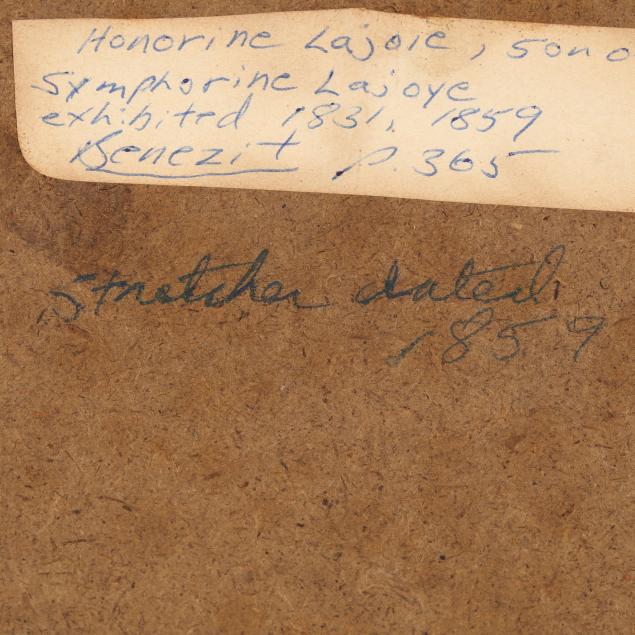 Honorine Lajoie, son o
Symphorine Lajoye
exhibited 1831, 1859
Benezit p. 365
Stretcher dated
1859